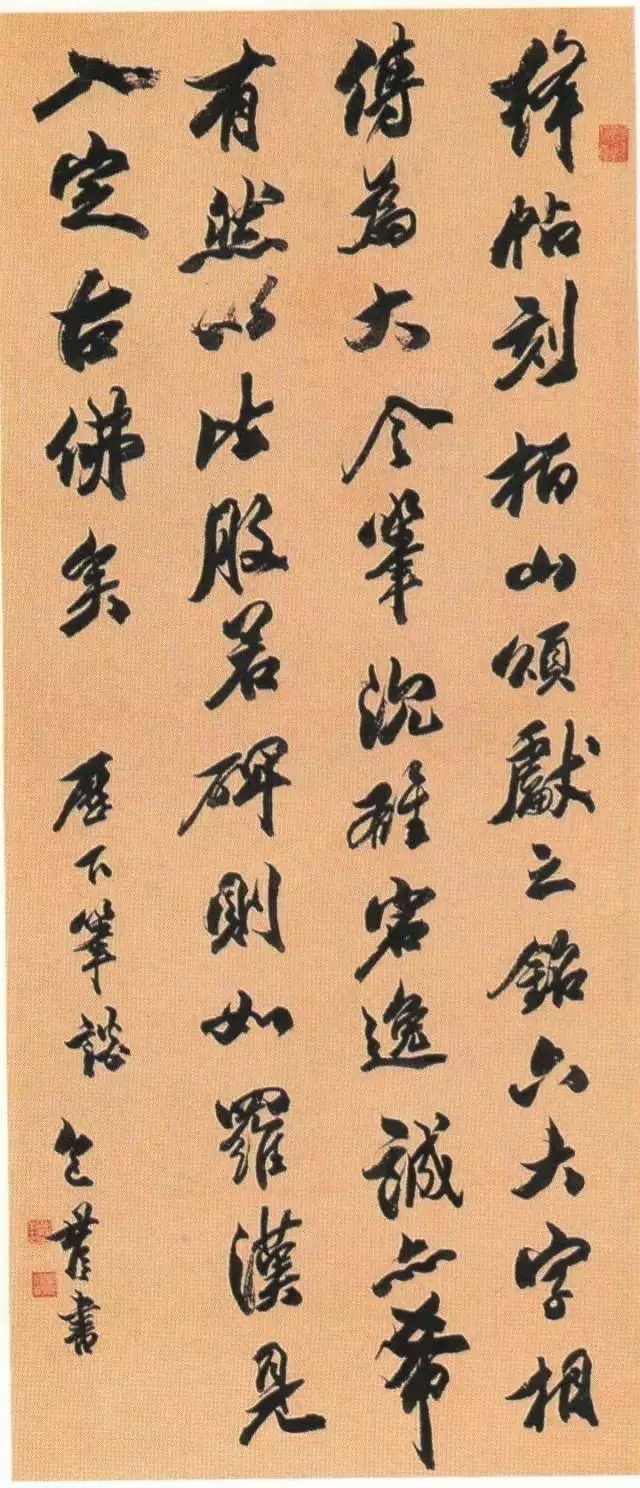 絳帖刻栢山頌獻之銘六大字相
傳為大令筆沉雄宕逸誠亦希
有然以比般若碑則如羅漢見
入定古佛矣
歷下筆談 包世臣書